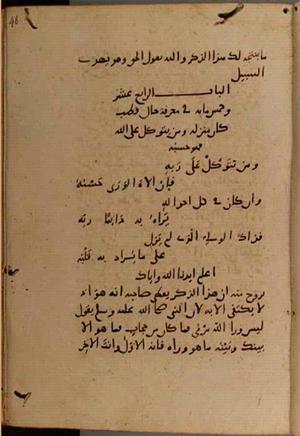 ما ينتجه لك هذا الذكر والله يقول الحق وهو يهدى
السبيل
الباب الرابع عشر
وخمسمائة فى معرفة حال قطب
كان منزله ومن يتوكل على الله
فهو حسبه
ومن يتوكل على ربه
فإن الاه الورى حسبه
وإن كان فى كل أحواله
يراه به دائما ربه
فذاك الولى الذى لم يزل
على ما يراد به قلبه
اعلم أيدنا الله وإياك
بروح منه أن هذا الذكر يعطى صاحبه أنه هو لا
لا يكتفى إلا به لأن النبى صلى الله عليه وسلم يقول
ليس وراء الله مرمى فما كل من حجاب فما هو إلا
بينك وبينه ما هو وراه فإنه الأول وأنت الآخر